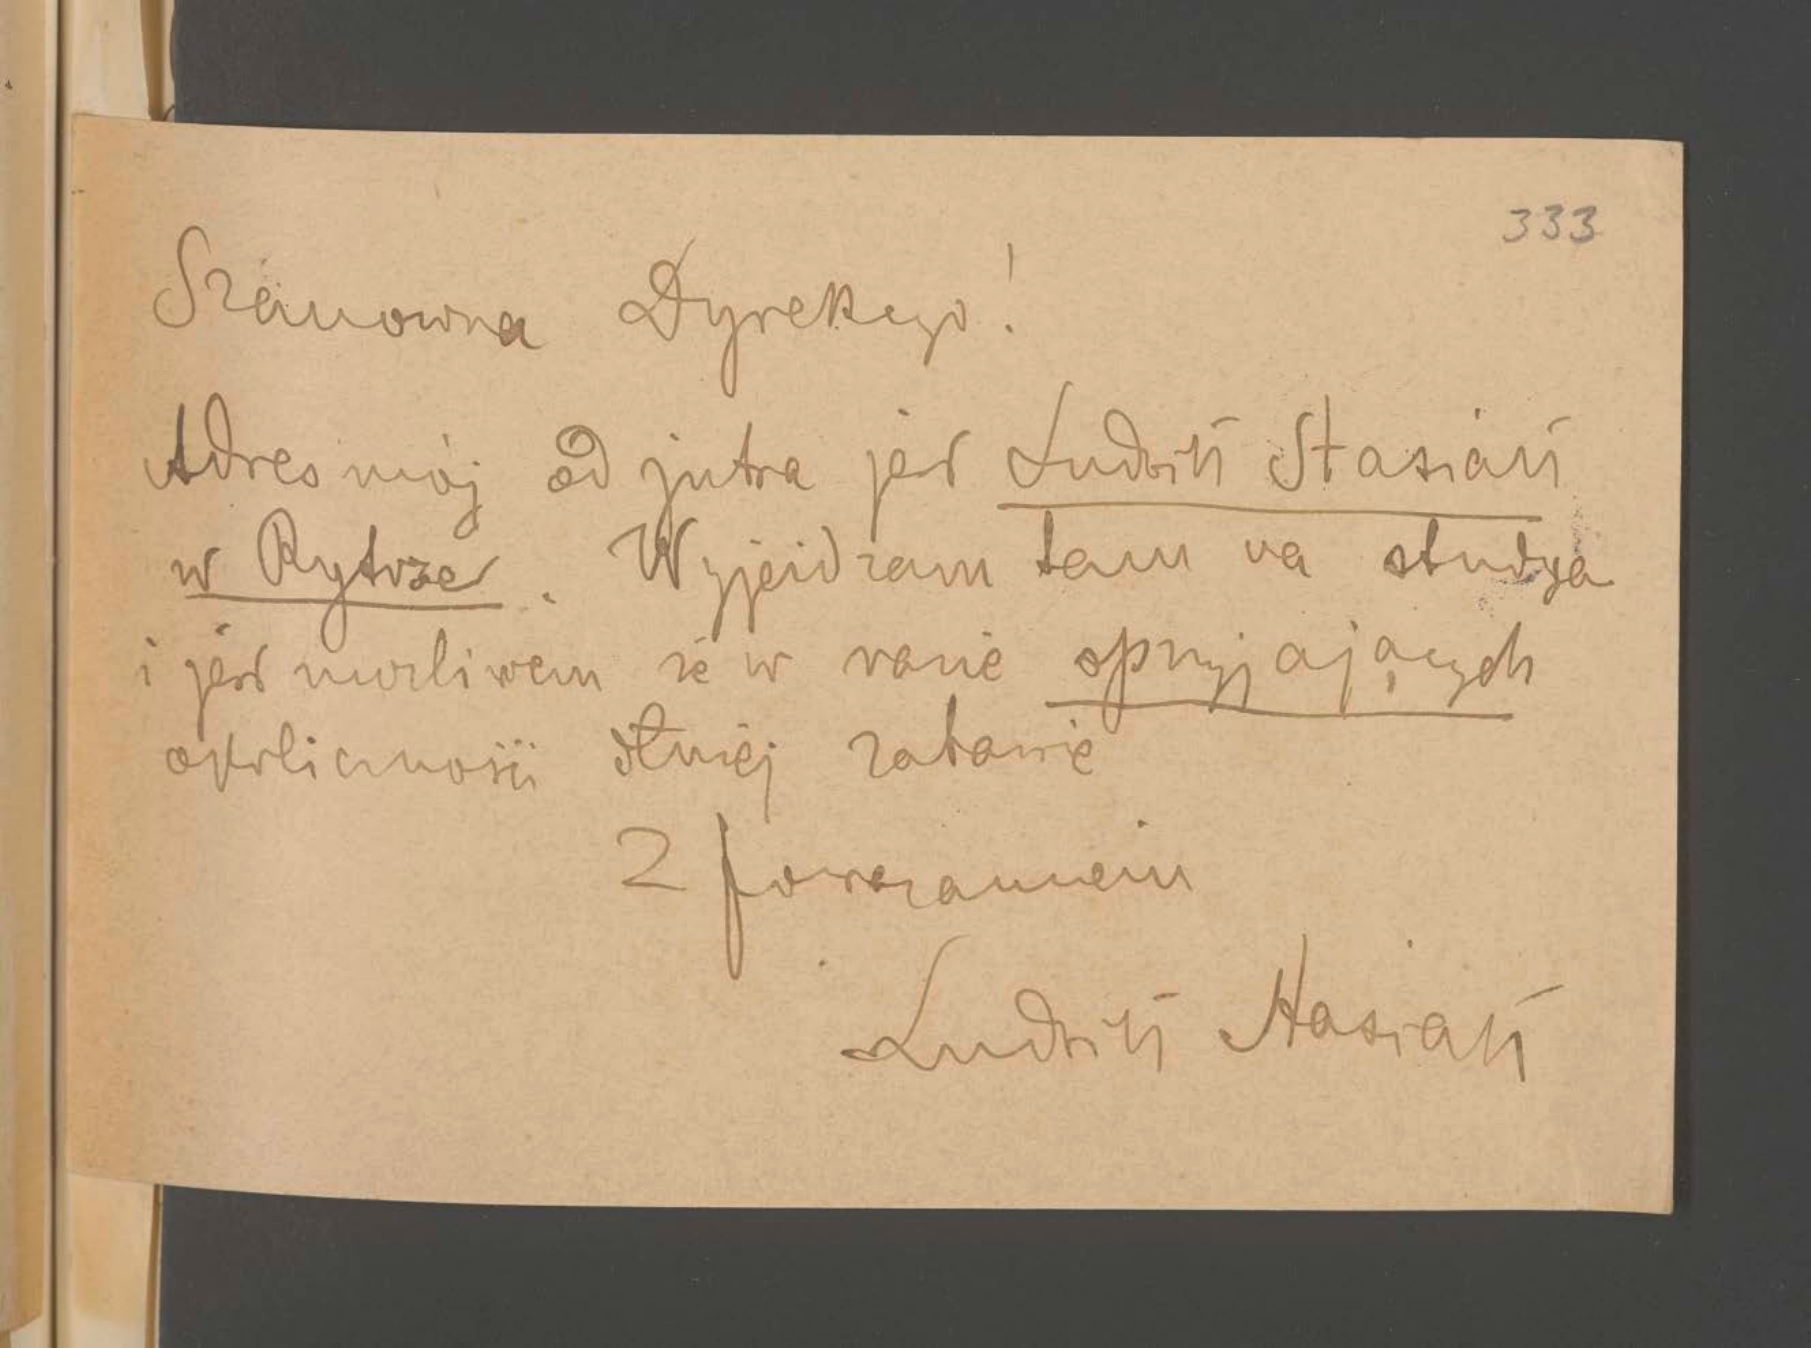 333
Szanowna Dyrekcyo!
Adres mój od jutra jest Ludwik Stasiak
w Rytrze. Wyjeżdzam tam na studya
i jest możliwem że w razie sprzyjających
okoliczności dłużej zabawię
Z poważaniem
Ludwik Stasiak